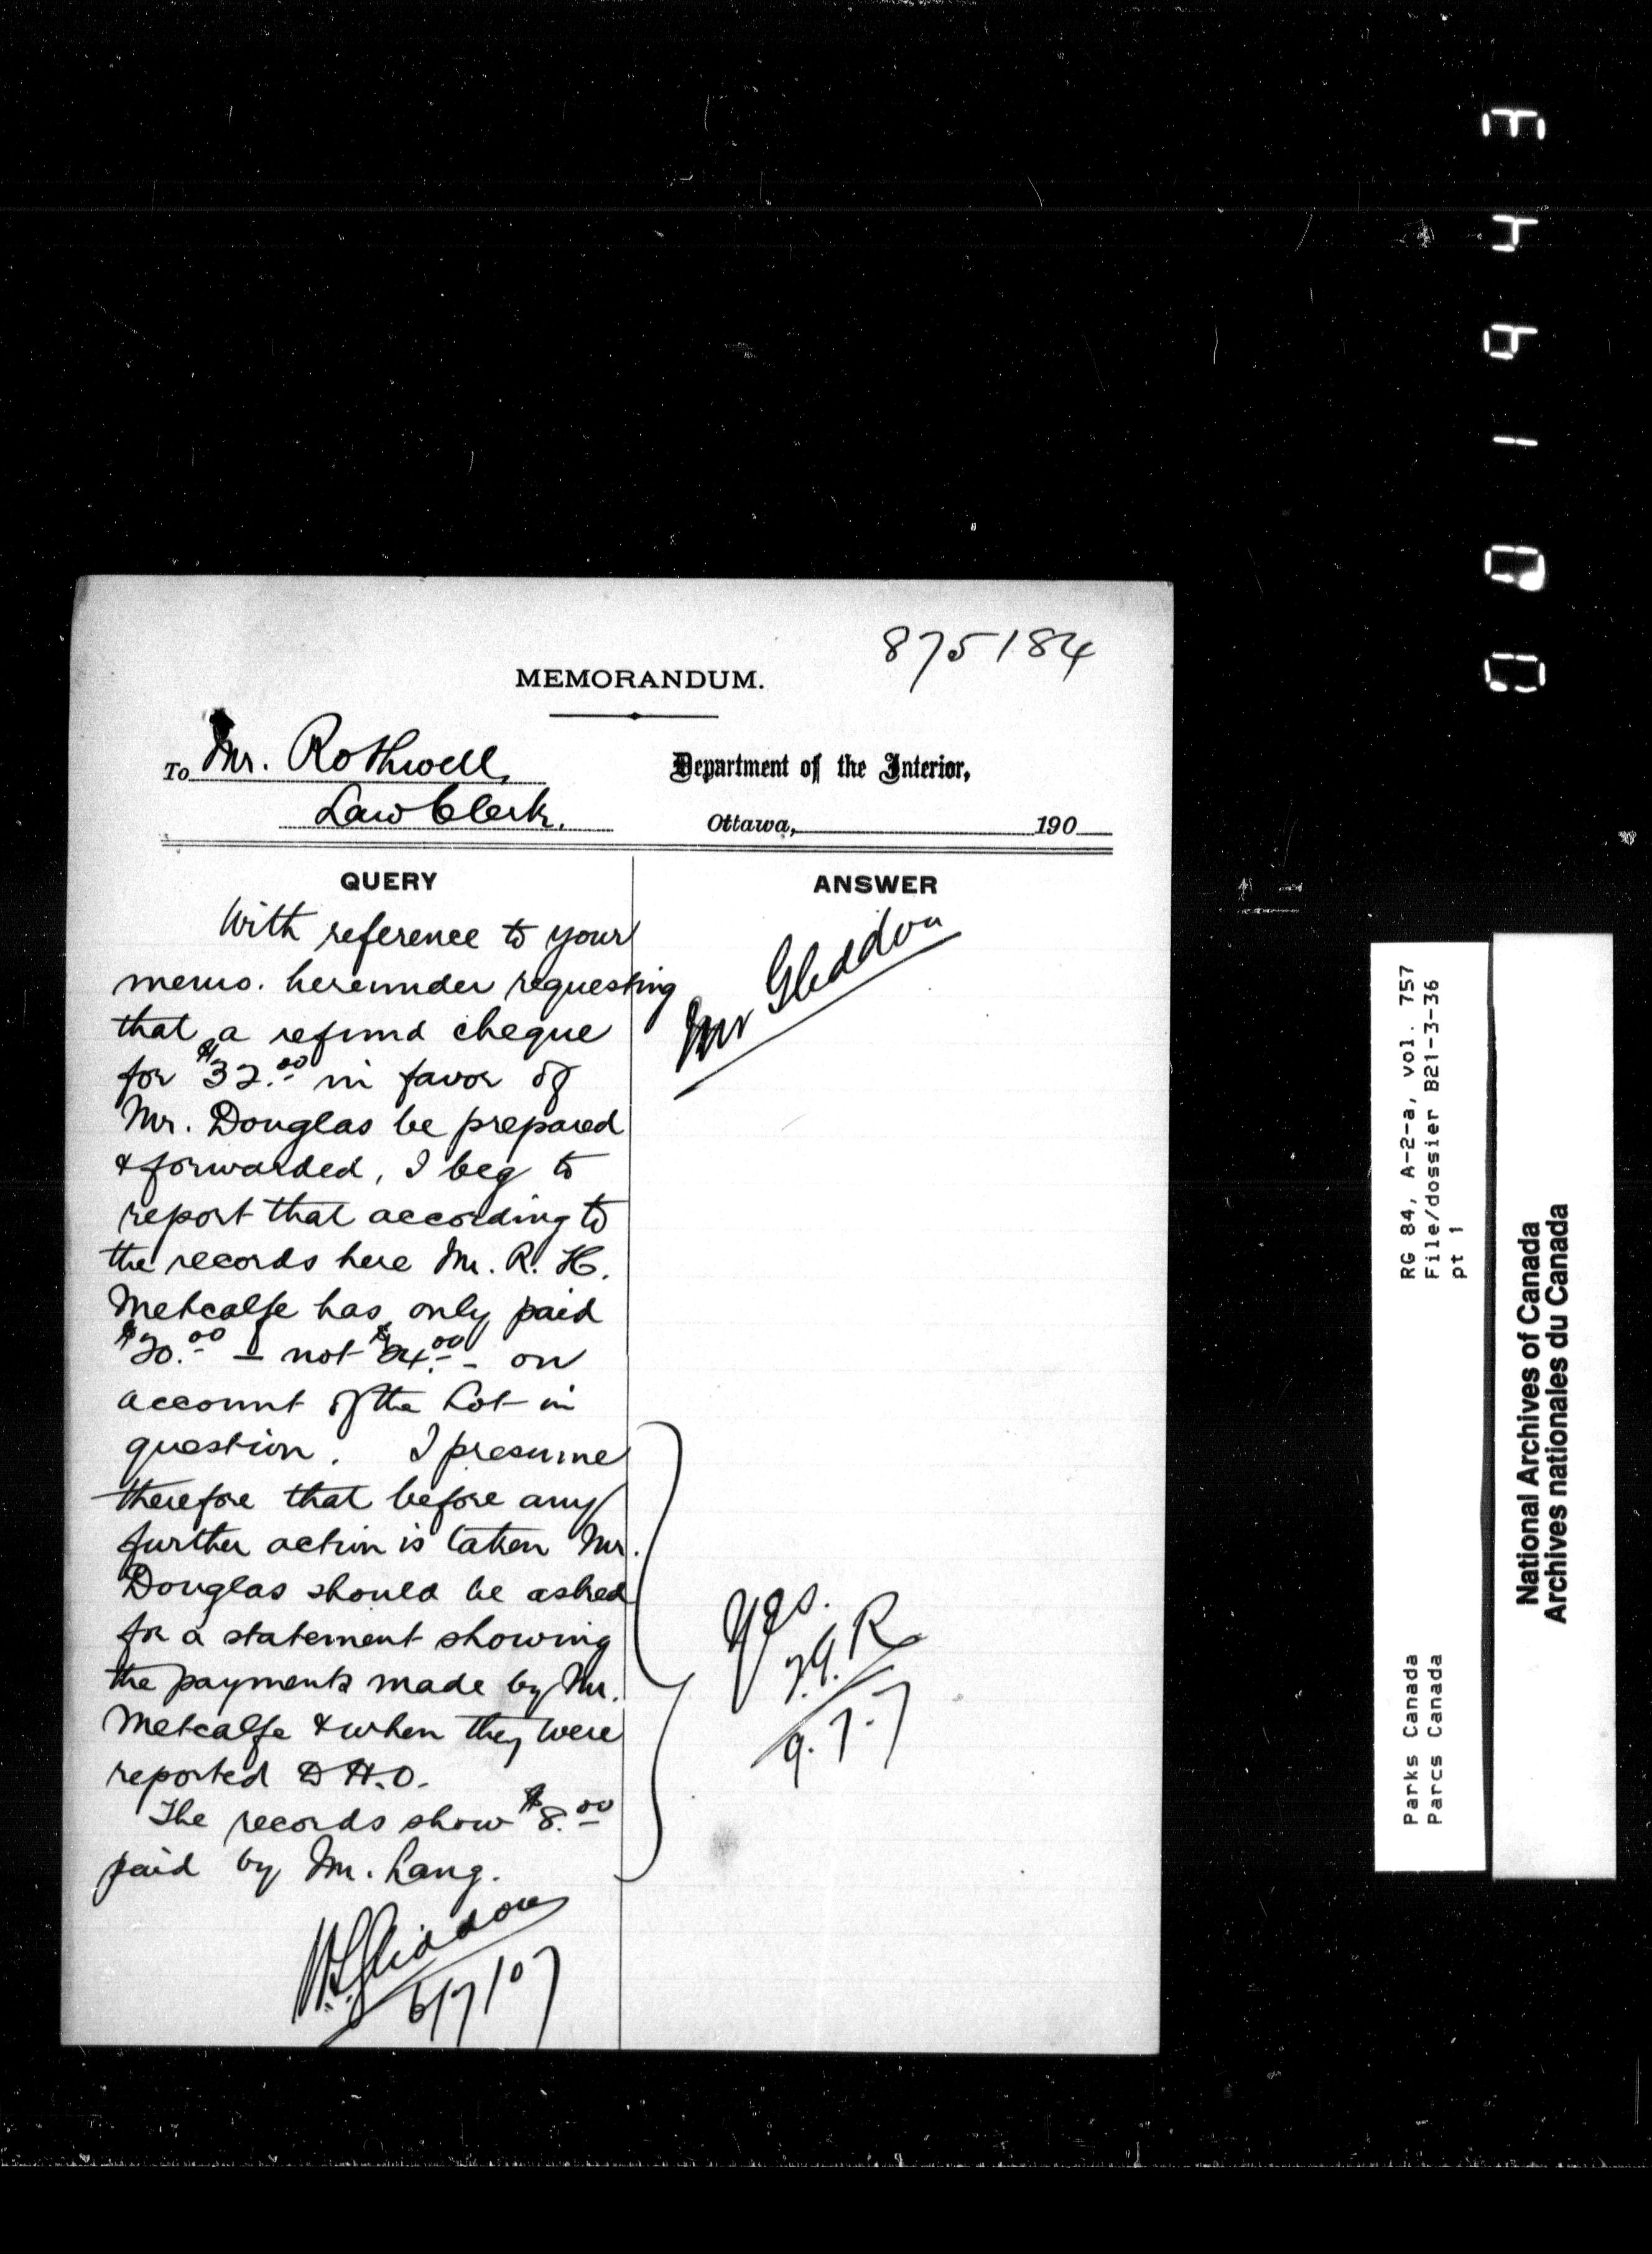 875184
MEMORANDUM.
To Mr. Rothwell,
Law Clerk.
Department of the Interior,
Ottawa, 190
QUERY
With reference to your
memo. hereunder requesting
that a refund cheque
for $32.00 in favor of
Mr. Douglas be prepared
& forwarded, I beg to
report that according to
the records here Mr. R. H.
Metcalfe has only paid
$20.00 - not $24.00 - on
account of the Lot in
question. I presume
therefore that before any
further action is taken Mr.
Douglas should be asked
for a statement showing
the payments made by Mr.
Metcalfe & when they were
reported to H.O.
The records show $8.00
paid by Mr. Lang.
Gliddon
6/7/07
ANSWER
Mr Gliddon
Yes.
R
9.7.7
RG 84, A-2-a, vol. 757
File/dossier B21-3-36
pt 1
Parks Canada
Parcs Canada
National Archives of Canada
Archives nationales du Canada